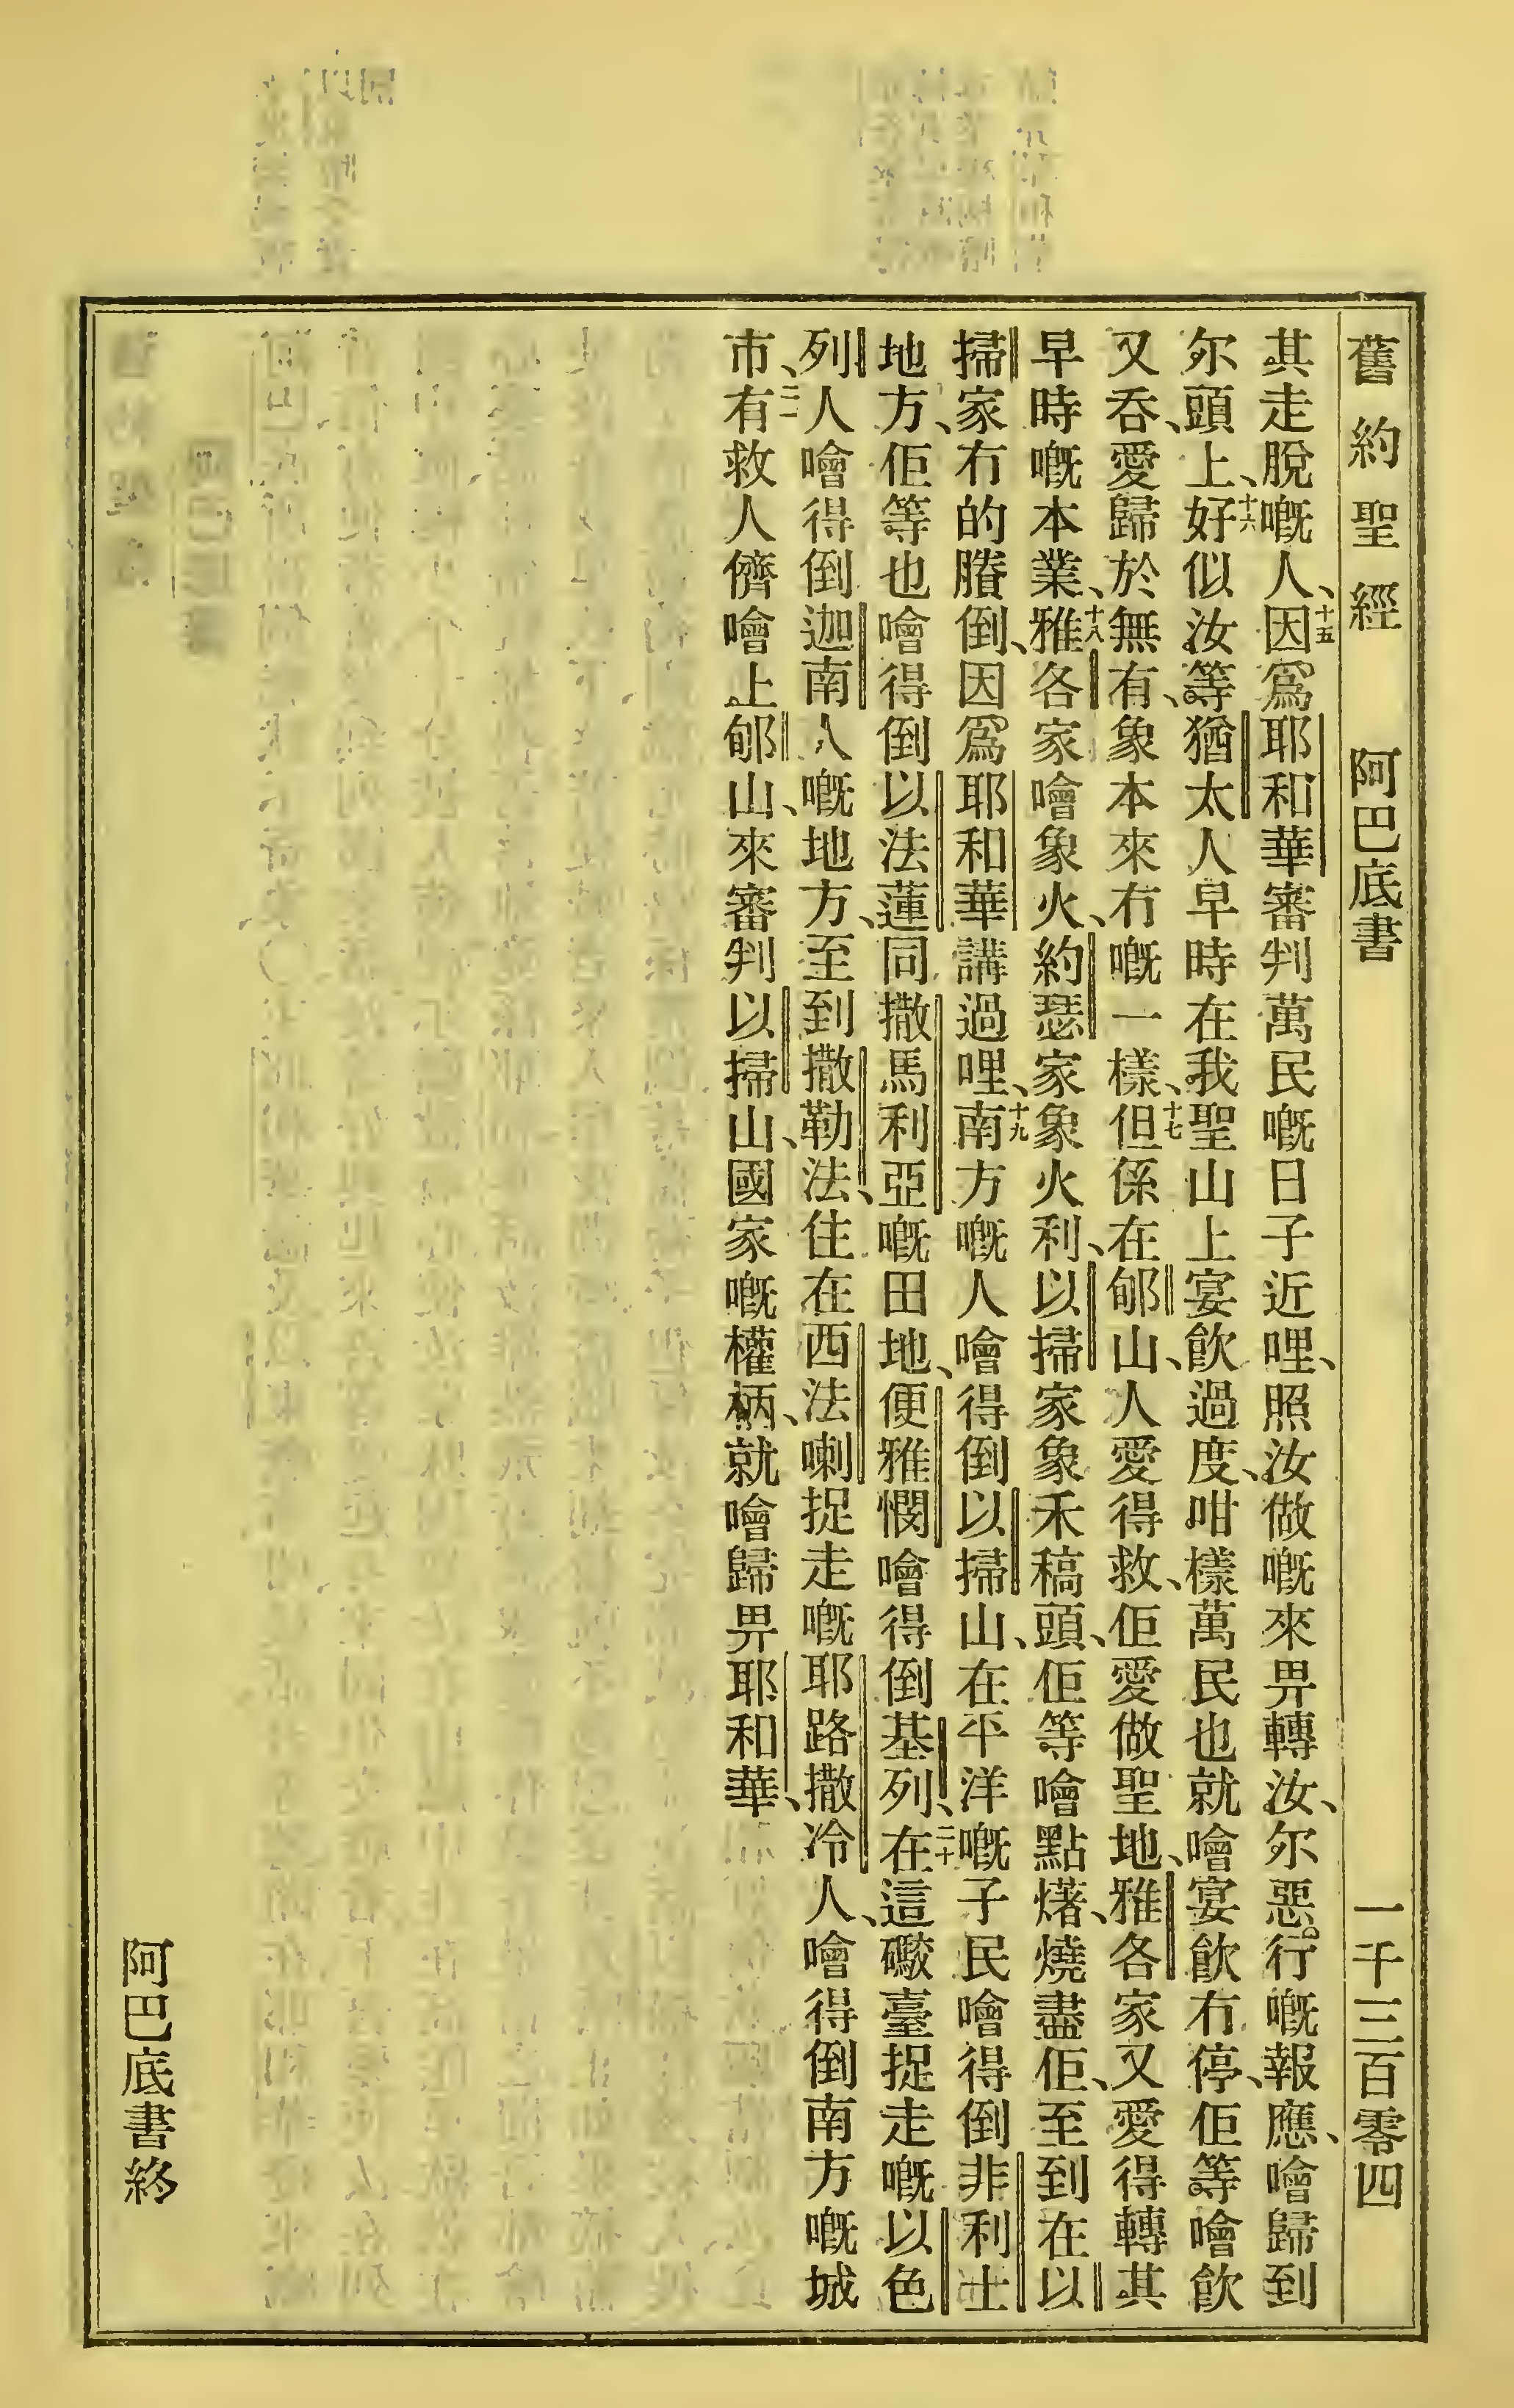 舊約聖經 阿巴底書 一千三百零四
其走脫嘅人、十五因爲耶和華審判萬民嘅日子近哩、照汝做嘅來畀轉汝、尔惡行嘅報應、噲歸到
尔頭上、十六好似汝等猶太人早時在我聖山上宴飲過度、咁樣萬民也就噲宴飲冇停、佢等噲飲
又吞、愛歸於無有、象本來冇嘅一樣、十七但係在郇山、人愛得救、佢愛做聖地、雅各家又愛得轉其
早時嘅本業、十八雅各家噲象火、約瑟家象火利、以掃家象禾稿頭、佢等噲點㸃燒盡佢、至到在以
掃家冇的賸倒、因爲耶和華講過哩、十九南方嘅人噲得倒以掃山、在平洋嘅子民噲得倒非利士
地方、佢等也噲得倒以法蓮同撒馬利亞嘅田地、便雅憫噲得倒基列、二十在這礮臺捉走嘅以色
列人噲得倒迦南人嘅地方、至到撒勒法、住在西法喇捉走嘅耶路撒冷人、噲得倒南方嘅城
市、二一有救人儕噲上郇山、來審判以掃山、國家嘅權柄、就噲歸畀耶和華、
阿巴底書終